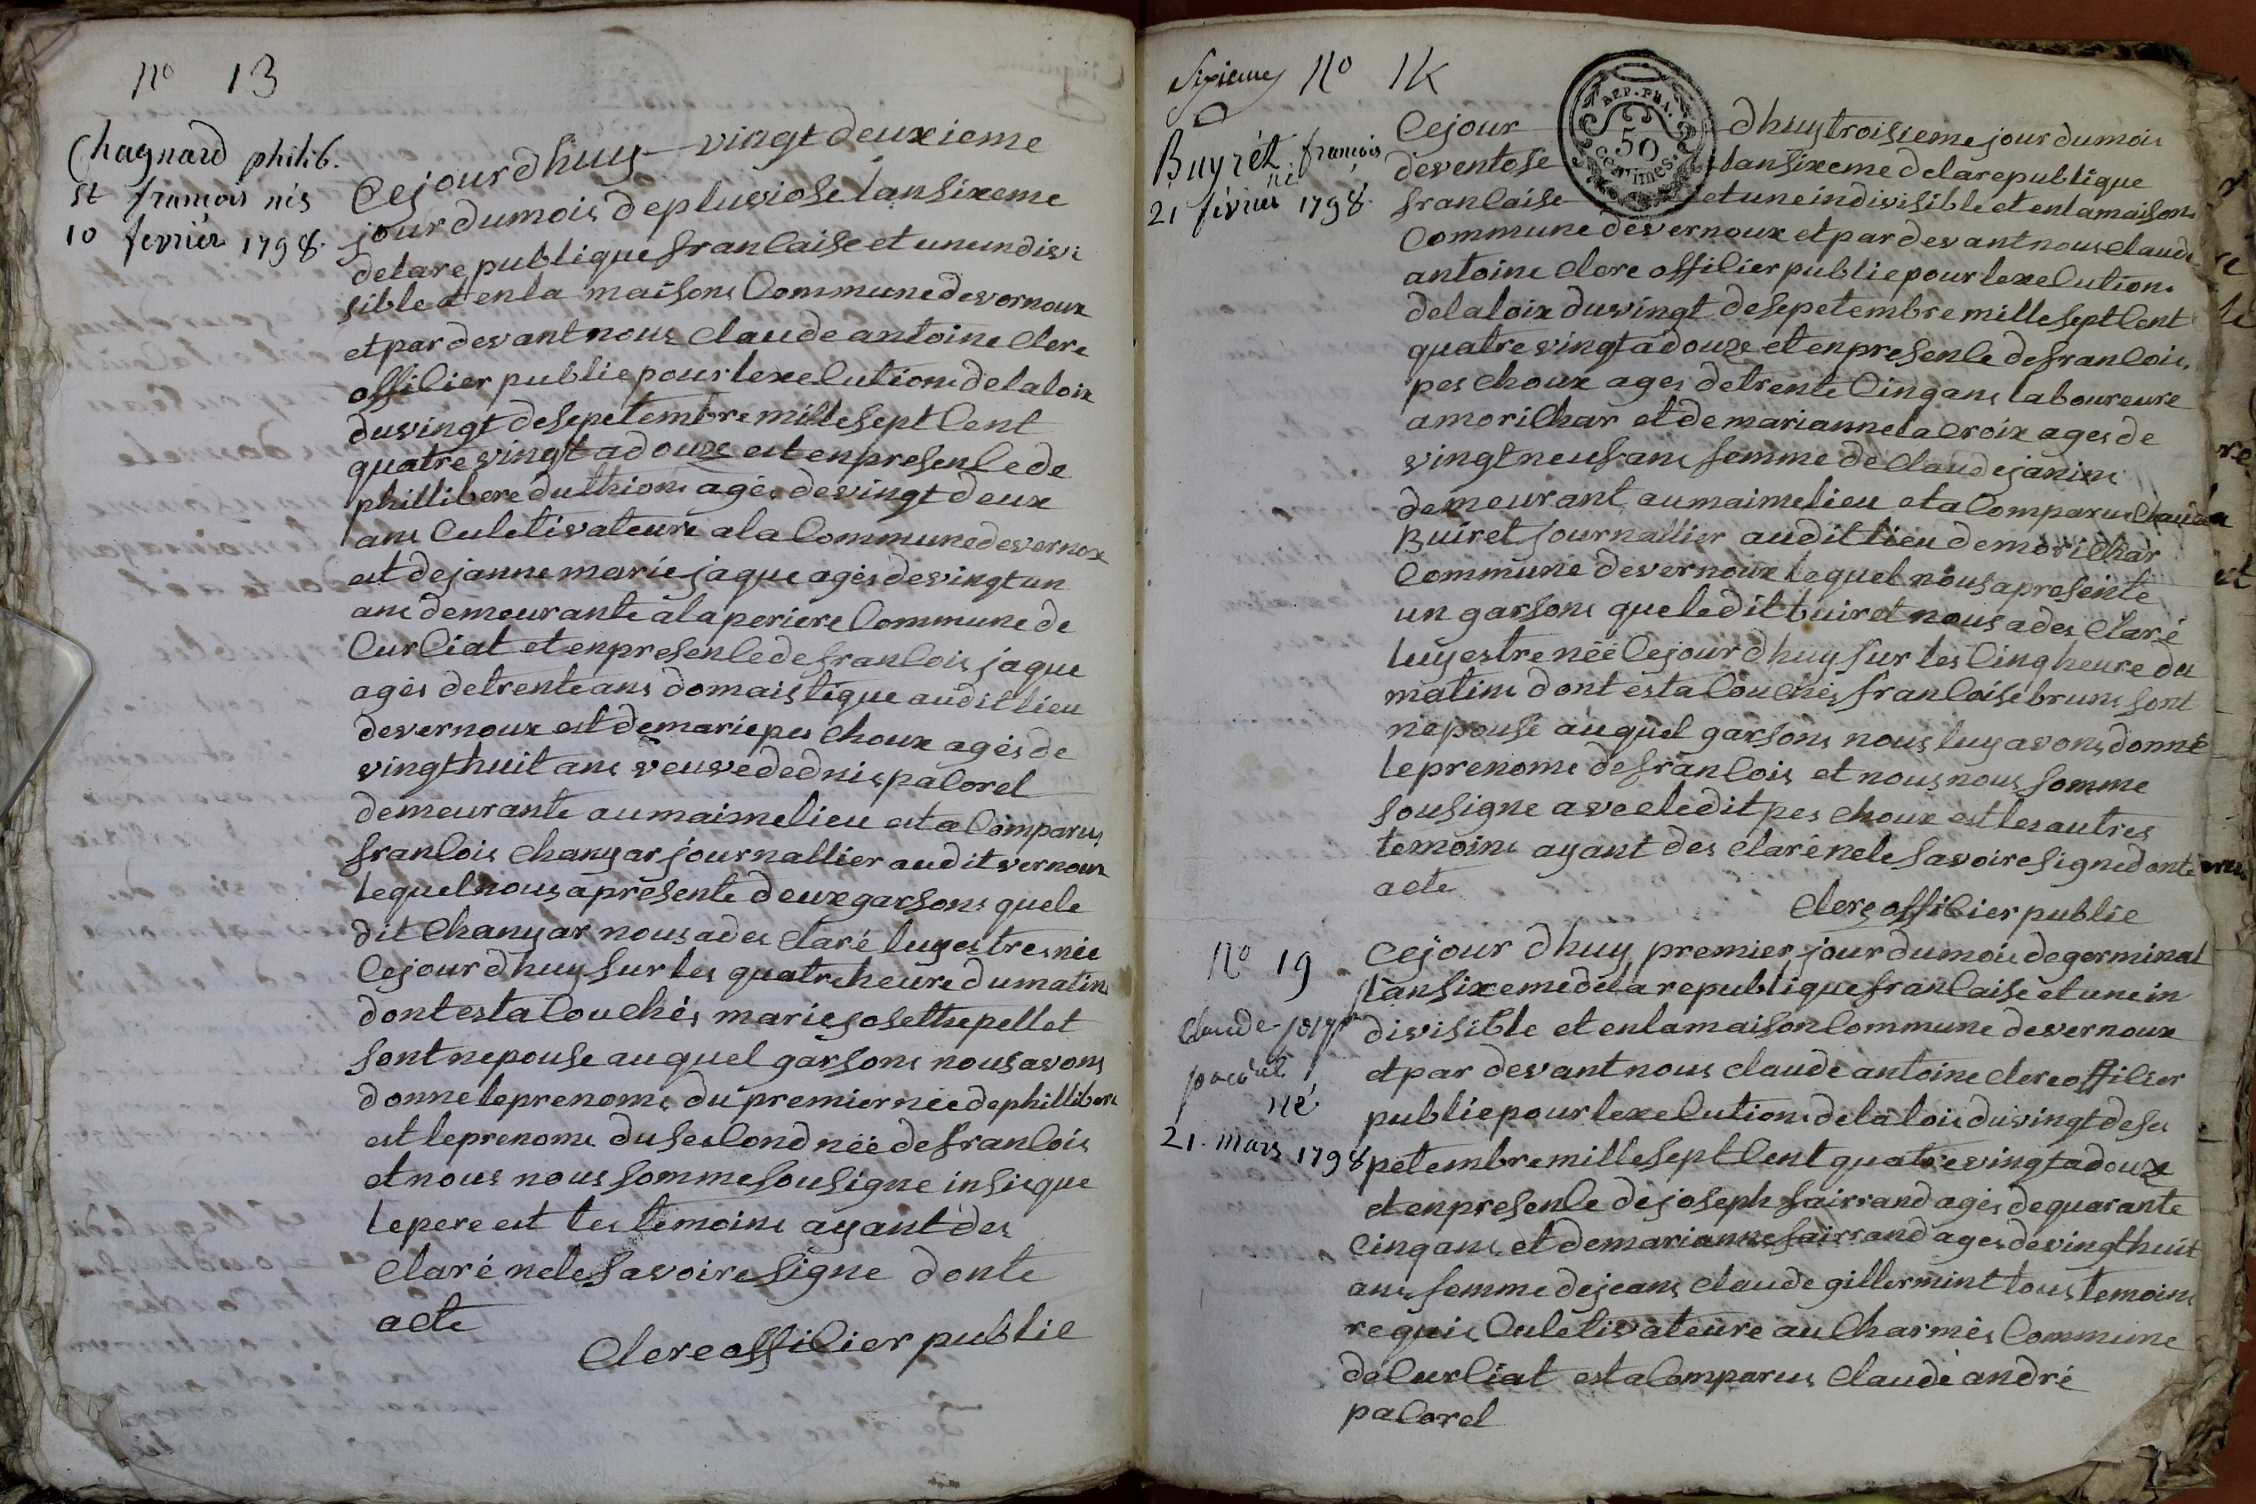 No 13
Chagnard philib.
st françois nés
10 fevrier 1798.
Cejourdhuy vingtdeuxieme
jourdumois depluviose lansixeme
delarepubliquefrancaise et uneindivi
sible et enla maisons Communedevernoux
etpardevantnous Claude antoine Clere
officier publicpourlexecutions delaloix
duvingt desepetembre millesept Cent
quatrevingtadouze est enpresencede
phillibere duthions agés devingt deux
ans Culetivateure ala Communedevernox
est dejanne marie jaque agés devingtun
ans demeurante alaperiere Commune de
Curciat et enpresencedefrancois jaque
agés detrenteans domaistique auditlieu
devernoux est demariepes choux agés de
vingthuit ans veuvedednispacorel
demeurante aumaimelieu esta Comparus
francois Chanyar journallier auditvernoux
lequelnousapresente deuxgarsons quele
dit Chanyar nousades claré luyestresnée
Cejourdhuy sur les quatreheure dumatins
dontesta Couchés mariejosettepellet
sontnepouse auquel garsons nousavons
donneleprenoms du premiernéedephillibere
est leprenoms dusescond néedefrancois
etnous nous sommesousigne insieque
lepere est les temoins ayant des
claré nelesavoiresigne donte
acte
Clereofficier public
Sixieme No 14
Buyrét françois
né
21 février 1798.
REP. FRA.
50
CENTIMES.
Cejour dhuytroisiemejourdumois
deventose lansixeme delarepublique
francaise et uneindivisible et enlamaisons
Commune devernoux et pardevantnousclaude
antoine Clere officierpublicpourlexecutions
delaloix duvingt desepetembre millesept Cent
quatrevingtadouze et enpresence defrancois
pes choux ages detrente Cinqans laboureure
amorichar et de mariannelacroix ages de
vingtneufans femme de Claudejanins
demeurant aumaimelieu eta Comparus Claude
Buiret journallier auditlieu demorichar
Commune devernoux lequel nousapresente
un garsons queledit buiret nous ades claré
luyestrenéé Cejourdhuy sur les Cinqheure du
matins dont esta Couchés francoisebruns sont
nepouse auquel garsons nous luyavonsdonné
leprenoms defrancois et nousnous somme
sousigne avecledit pes choux est lesautres
temoins ayant des clarénele savoiresignedonte
acte
Clereofficierpublic
No 19
Claude joseph
pacaud
né
21. mars 1798
Cejour dhuy premier jourdumois degerminal
lansixemedelarepubliquefrancaise et unein
divisible et enlamaisonCommune devernoux
etpar devantnous claude antoine clereofficier
publicpourlexecutions delaloix duvingtdese
petembremillesept Cent quatrevingtadouze
et enpresence dejoseph fairrand agés dequarante
Cinqans et demariannefairrand agesdevingthuit
ans femme dejeans Claude gillermint tous temoins
requis Culetivateure au Charmes Commune
deCurciat esta Comparus Claude andré
pacorel